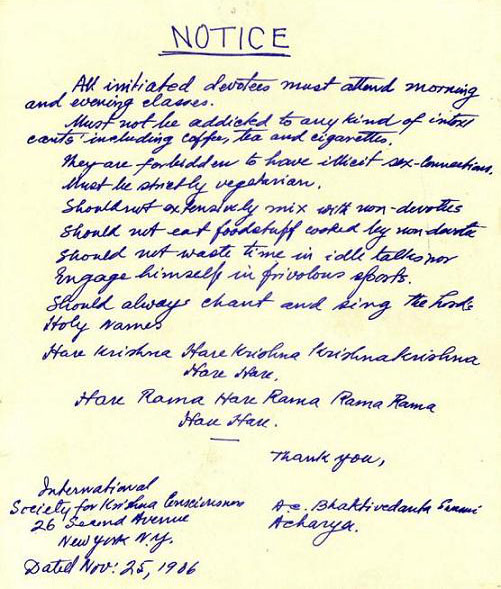 NOTICE
All initiated devotees must attend morning
and evening classes.
Must not be addicted to any kind of intoxi
cants including coffee, tea and cigarettes.
They are forbidden to have illicit sex-connections.
Must be strictly vegetarian.
Should not extensively mix with non-devotees
Should not eat foodstuff cooked by non-devotees
Should not waste time in idle talks nor
Engage himself in frivolous sports.
Should always chant and sing the Lord's
Holy Names
Hare Krishna Hare Krishna Krishna Krishna
Hare Hare.
Hare Rama Hare Rama Rama Rama
Hare Hare.
Thank you,
International
Society for Krishna Consciousness
26 Second Avenue
New York N.Y.
Dated Nov: 25, 1966
A.C. Bhaktivedanta Swami
Acharya.